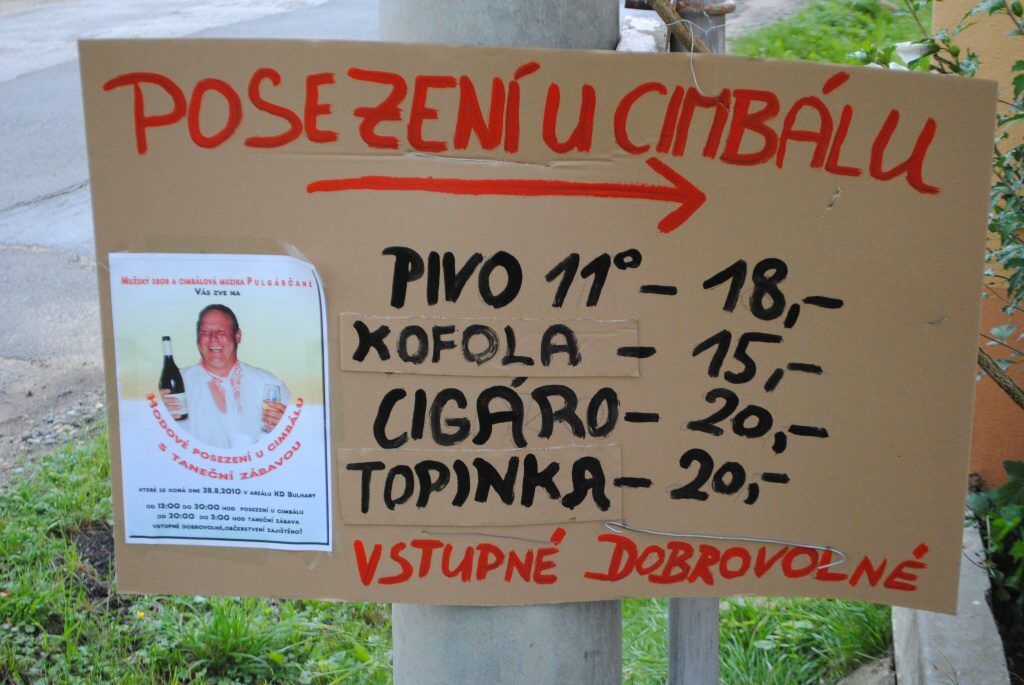 POSEZENÍ U CIMBÁLU
PIVO 11° - 18,-
KOFOLA - 15,-
CIGÁRO - 20,-
TOPINKA - 20,-
VSTUPNÉ DOBROVOLNÉ
MUŽSKÝ SBOR A CIMBÁLOVÁ MUZIKA PULGÁRČANÉ
VÁS ZVE NA
HODOVÉ POSEZENÍ U CIMBÁLU
S TANEČNÍ ZÁBAVOU
KTERÉ SE KONÁ DNE 28.8.2010 V AREÁLU KD BULHARY
OD 13:00 DO 20:00 HOD POSEZENÍ U CIMBÁLU
OD 20:00 DO 3:00 HOD TANEČNÍ ZÁBAVA
VSTUPNÉ DOBROVOLNÉ,OBČERSTVENÍ ZAJIŠTĚNO!